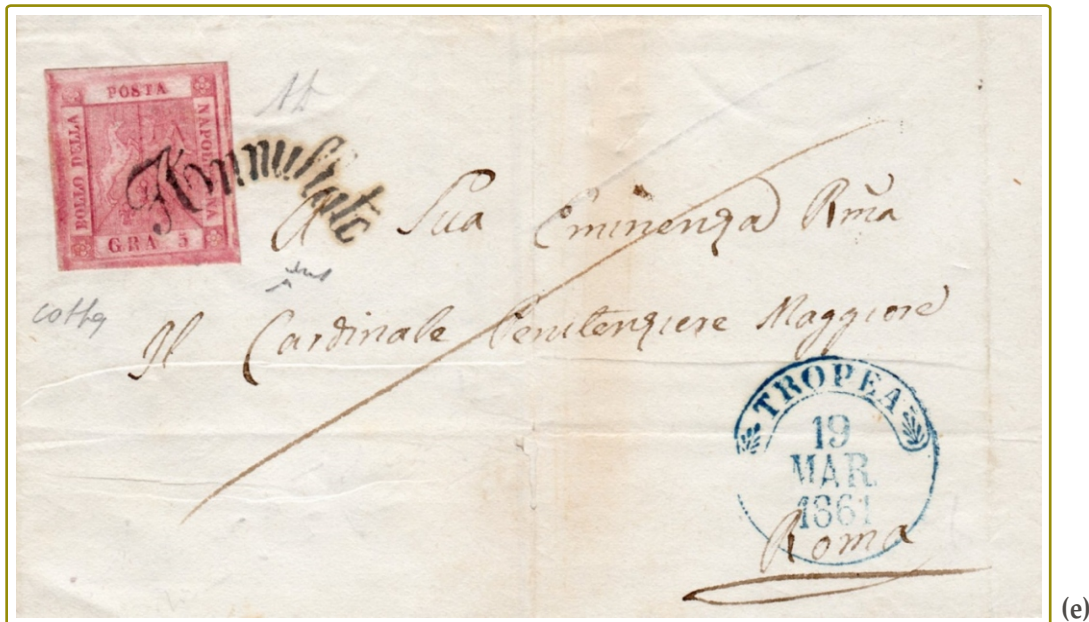 POSTA
BOLLO DELLA
NAPOLETANA
GRA 5
Annullato
A Sua Eminenza Rma
Il Cardinale Penitenziere Maggiore
TROPEA
19
MAR.
1861
Roma
(e)